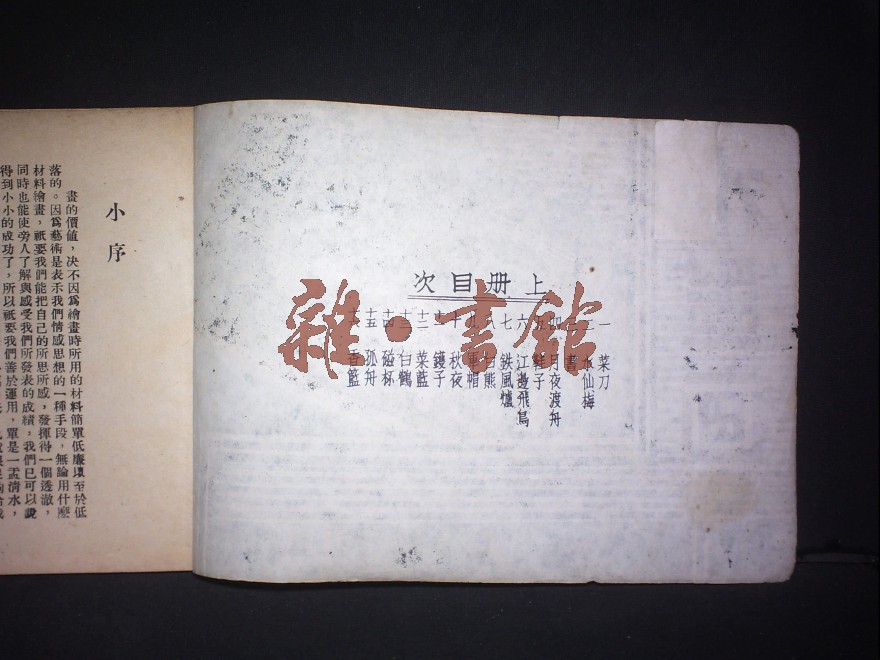 上册目次
一 菜刀
二 水仙梅
書
四 月夜渡舟
五 鞋子
六 江邊飛鳥
七 鉄風爐
八 白熊
帽
十 秋夜
十一 鑊子
十二 菜藍
十三 白鶴
十四 磁杯
十五 孤舟
香籃
雜·書館
小序
畫的價值，决不因爲繪畫時所用的材料簡單低廉至於低
落的。因爲藝術是表示我們情感思想的一種手段，無論用什麼
材料繪畫，祇要我們能把自己的所思所感，發揮得一個透澈，
同時也能使旁人了解與感受我們所發表的成績，我們已可以說
得到小小的成功了，所以祇要我們善於運用，單是一盂清水，